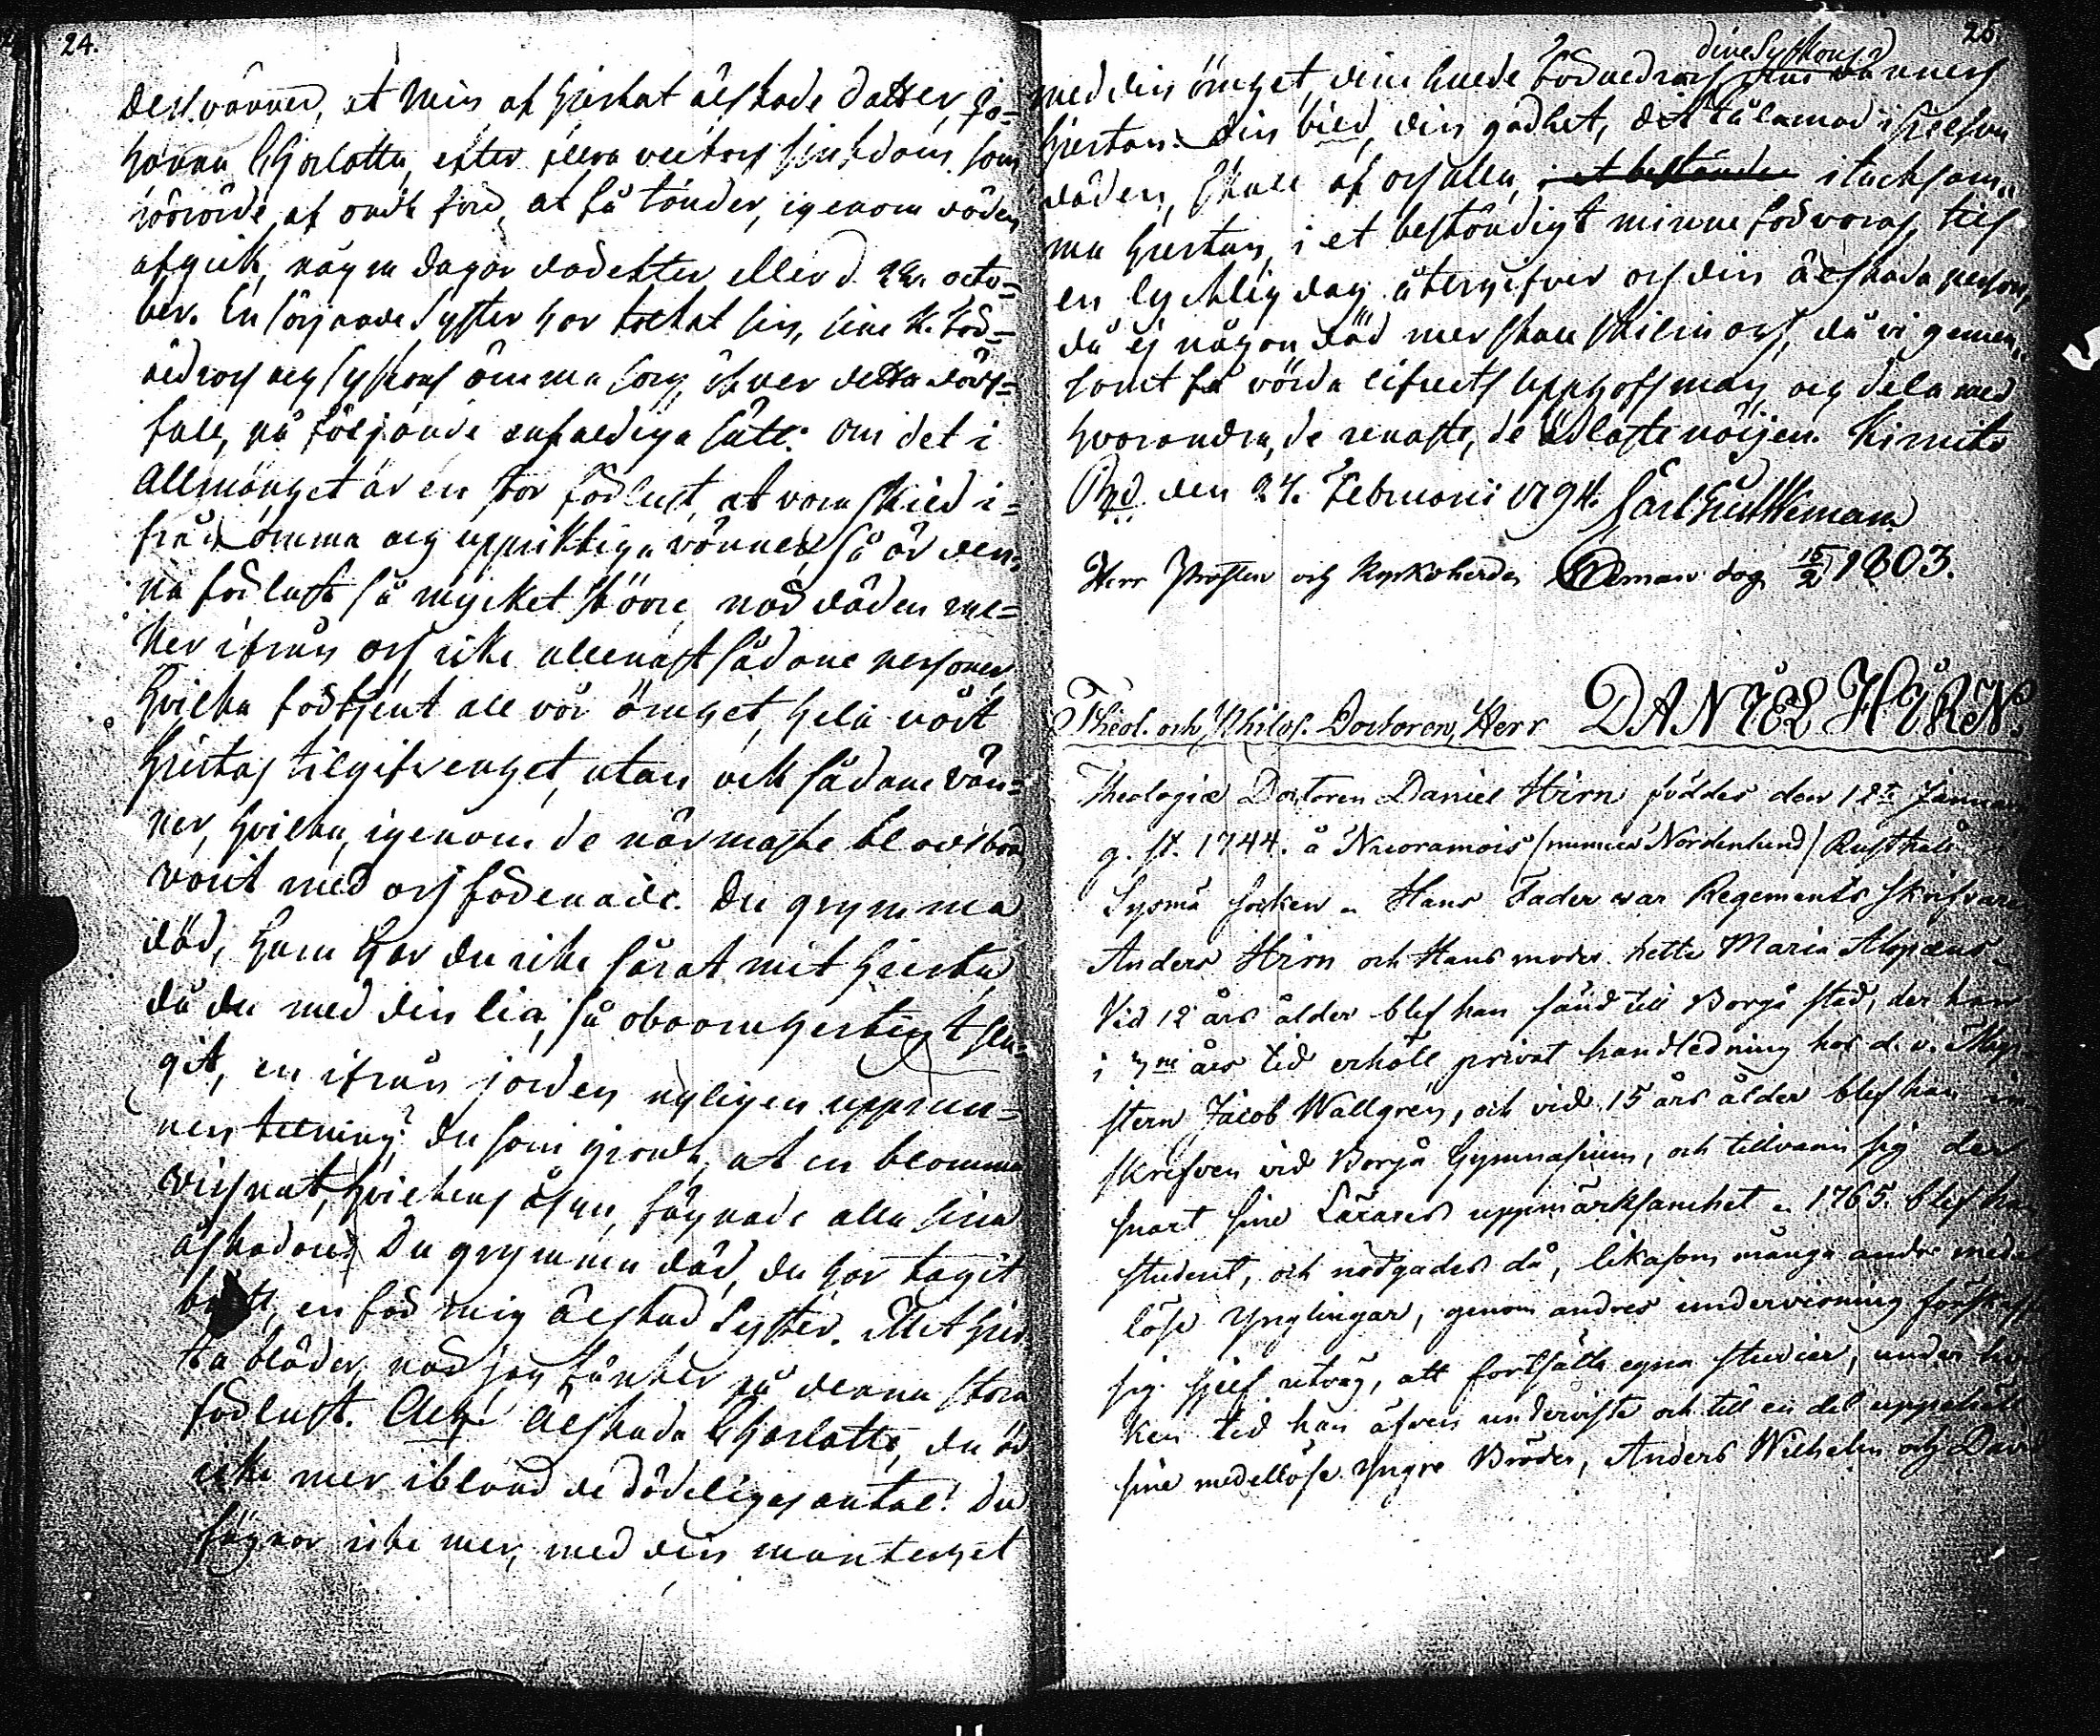 24.
dess vänner, at min af hiertat älskade datter, Jo=
hanna Charlotta, efter flera veckors siukdom, som
rörörde af ondt ford, at få tänder, igenom döden
afgick, någre dagar därefter eller d. 22. octo=
ber. En sörjande Syster har täckat sin, sine K. För=
äldrars och Syskons ömma sorg öfver detta döds=
fall, på följande enfaldiga sätt: Om det i
Allmänhet är en stor förlust, at vara skild i=
från ömma och uppriktiga vänner, så är den=
na förlust så mycket större, när döden ryc=
ker ifrån oss icke allenast sådane personer,
hvilka förtjent all vår ömhet, hela vårt
hiertas tilgifvenhet, utan ock sådane vän=
ner, hvilka, igenom de närmaste blodsband
varit med oss förenade. Du grymma
död, huru har du icke sårat mit hierta,
då du med din lia, så obarmhertigt sla=
git, en ifrån jorden nyligen upprun=
nen telning? Du som giordt, at en blomma
vissnat, hvilkens åsyn, fägnade alla sina
åskådare. Du grymma död, du har tagit
bort, en för mig älskad Syster. Mit hier=
ta blöder, när jag tänker på denna stora
förlust. Ach! älskada Charlotta, du är
icke mer ibland de dödeligas antal! Du
fägnar icke mer, med din munterhet
25.
dine Syskons
med din ömhet, dine hulde Föräldrars, vänners
hiertan. Din bild, din godhet, dit tålamod i sielfva
döden, skall af oss alla, i et beständi i tacksam=
ma hiertan, i et beständigt minne förvaras, tils
en lycklig dag återgifver oss din älskada person,
då ej någon död mer skall skilia oss, då vi gemen=
samt få vörda lifvets upphofsman, och dela med
hvarandra, de renaste, de ädlaste nöijen. Kimito
Prd. den 24. Februarii 1794. Carl Gust Weman
Herr Prosten och Kyrkoherden Weman dog 15/2 1803.
Theol. och Philos. Doctoren, Herr DANIEL HIRN.
Theologiæ Doctoren Daniel Hirn föddes den 12te Januar
g. st. 1744. å Nuoramois (numera Nordenlund) Rusthåll
Sysmä socken. Hans Fader war Regements skrifvare
Anders Hirn och Hans moder hette Maria Alopæus.
Vid 12 års ålder blef han sänd till Borgå stad, der han
i 3ne års tid erhöll privat handledning hos d. v. Mag
stern Jacob Wallgren, och vid 15 års ålder blef han in
skrifven vid Borgå Gymnasium, och tillvann sig der
snart sine Lärares uppmärksamhet. 1765. blef han
student, och nödgades då, likasom många andre medel
löse Ynglingar, genom andres undervisning förskaffa
sig sjelf utväg, att fortsätta egna studier, under hvil
ken tid han äfven underviste och till en del uppehöll
sine medellöse yngre Bröder, Anders Wilhelm och David